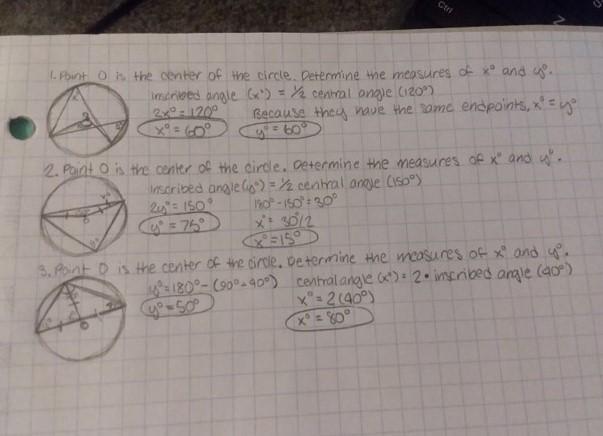 1. Point O is the center of the circle. Determine the measures of x° and y°.
inscribed angle (x°) = 1/2 central angle (120°)
2x° = 120° Because they have the same endpoints, x° = y°
x° = 60° y° = 60°
2. Point O is the center of the circle. Determine the measures of x° and y°.
inscribed angle (y°) = 1/2 central angle (150°)
2y° = 150° 180° - 150° = 30°
y° = 75° x° = 30°/2
x° = 15°
3. Point O is the center of the circle. Determine the measures of x° and y°.
y° = 180° - (90° - 40°) central angle (x°) = 2 • inscribed angle (40°)
y° = 50° x° = 2(40°)
x° = 80°
Ctrl
Z